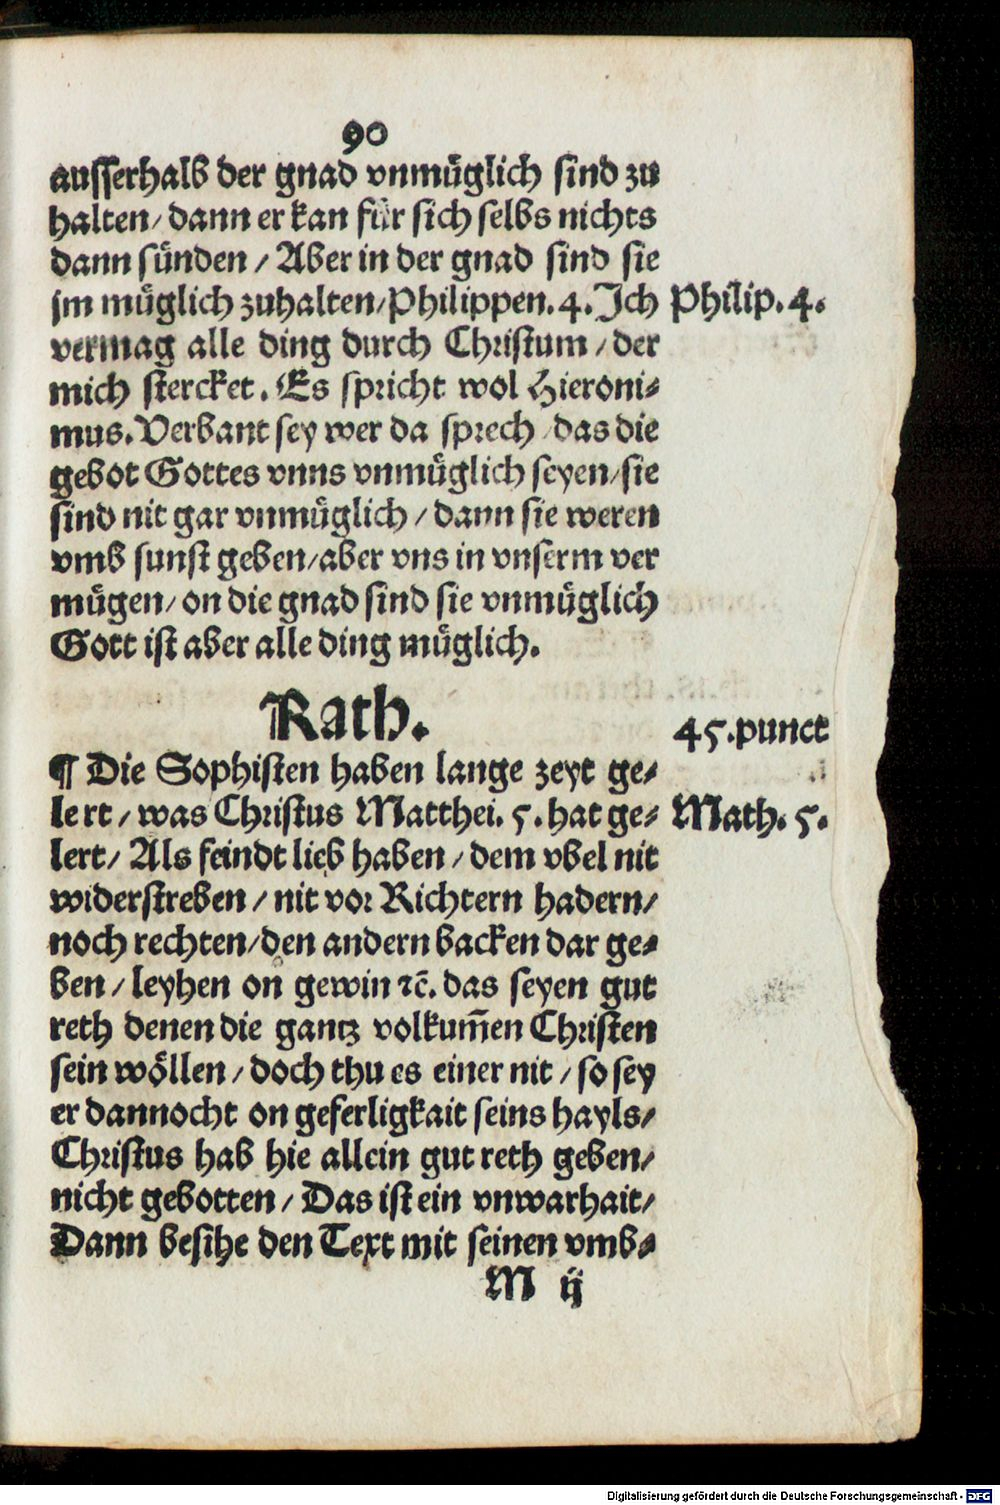 90
ausserhalb der gnad vnmüglich sind zu
halten/ dann er kan für sich selbs nichts
dann sünden / Aber in der gnad sind sie
jm müglich zuhalten/Philippen. 4. Jch
Philip. 4.
vermag alle ding durch Christum / der
mich stercket. Es spricht wol Hieroni⸗
mus. Verbant sey wer da sprech /das die
gebot Gottes vnns vnmüglich seyen/sie
sind nit gar vnmüglich / dann sie weren
vmb sunst geben/aber vns in vnserm ver
mügen/ on die gnad sind sie vnmüglich
Gott ist aber alle ding müglich.
Rath.
45.punct
¶ Die Sophisten haben lange zeyt ge⸗
lert / was Christus Matthei. 5. hat ge⸗
Math. 5.
lert/ Als feindt lieb haben / dem vbel nit
widerstreben / nit vor Richtern hadern/
noch rechten/den andern backen dar ge⸗
ben / leyhen on gewin ꝛc̄. das seyen gut
reth denen die gantz volkum̄en Christen
sein wöllen / doch thu es einer nit / so sey
er dannocht on geferligkait seins hayls/
Christus hab hie allein gut reth geben/
nicht gebotten / Das ist ein vnwarhait/
Dann besihe den Text mit seinen vmb⸗
M ij
Digitalisierung gefördert durch die Deutsche Forschungsgemeinschaft - DFG